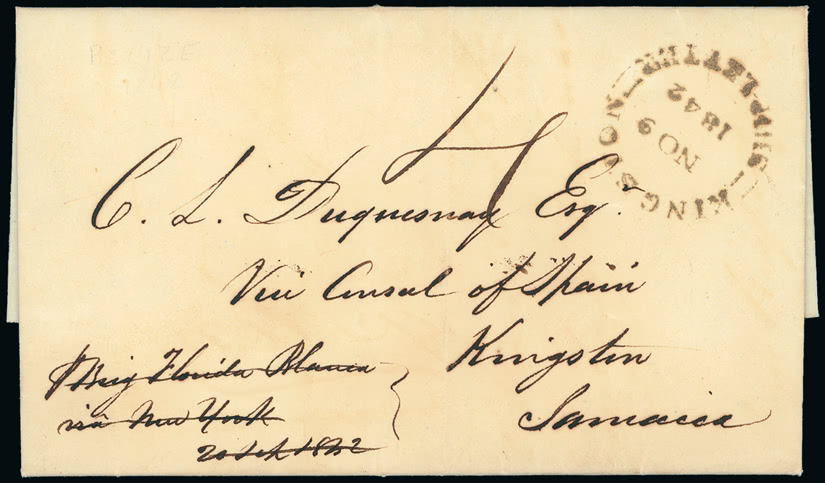 BELIZE
1842
4
KINGSTON SHIP LETTER
NO 9
1842
C. L. Duquesnay Esqr
Vice Consul of Spain
Kingston
Jamaica
Brig Florida Blanca
via New York
20 Sep 1842